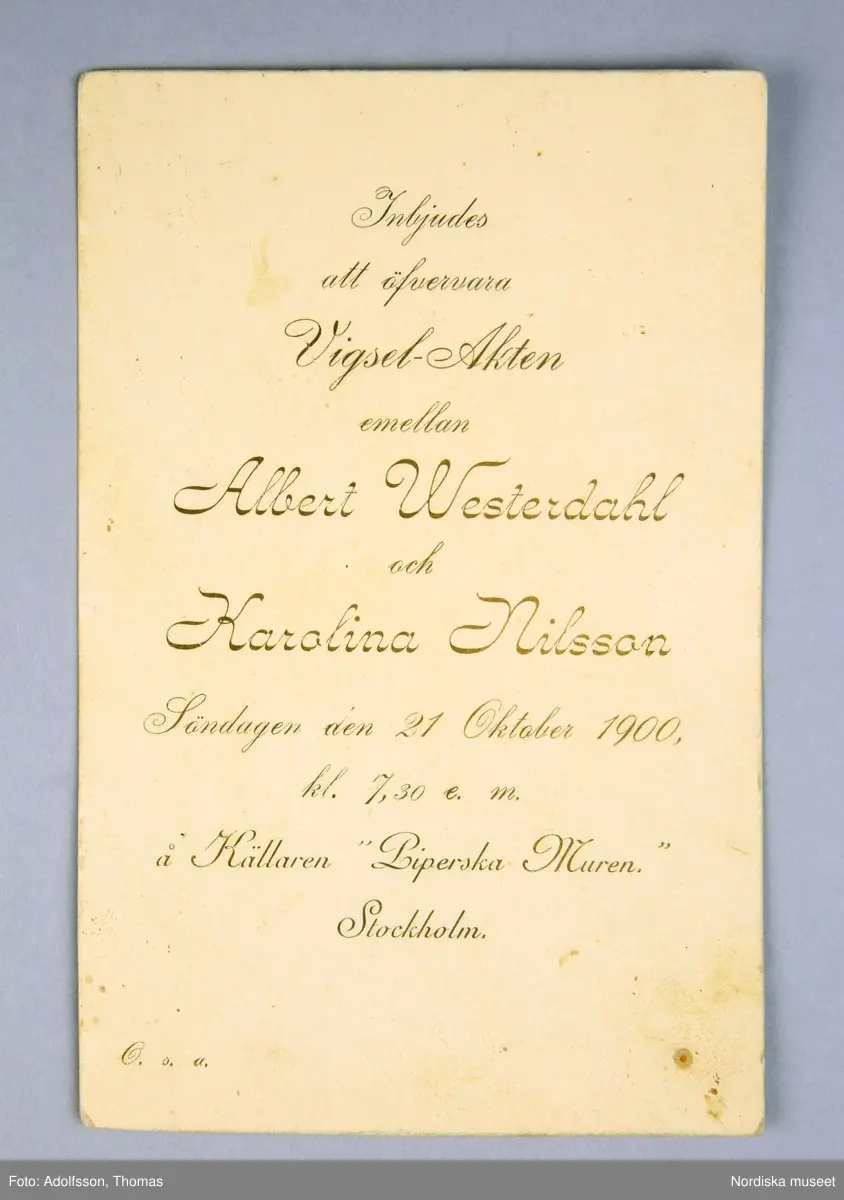 Inbjudes
att öfvervara
Vigsel-Akten
emellan
Albert Westerdahl
och
Karolina Nilsson
Söndagen den 21 Oktober 1900,
kl. 7,30 e. m.
å Källaren "Piperska Muren."
Stockholm.
O. s. a.
Foto: Adolfsson, Thomas
Nordiska museet